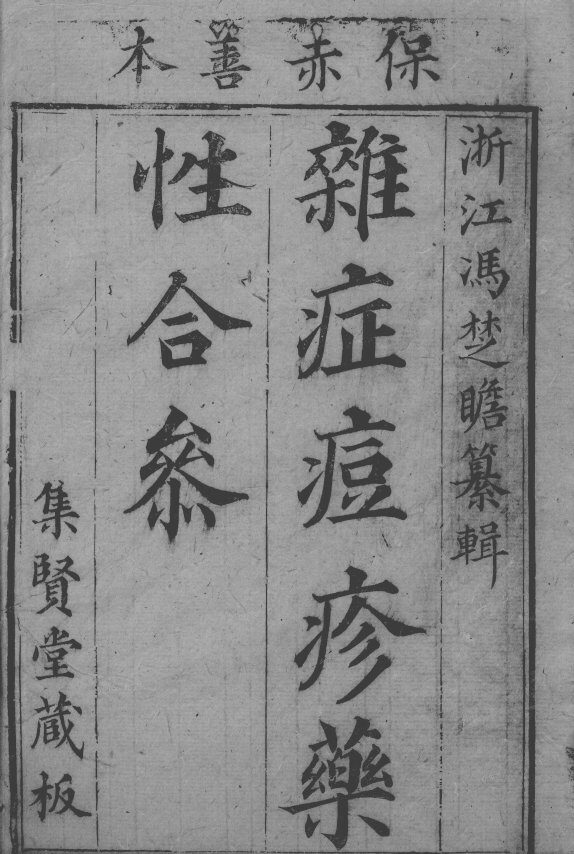 保赤善本
浙江馮楚瞻纂輯
雜症痘疹藥
性合參
集賢堂藏板